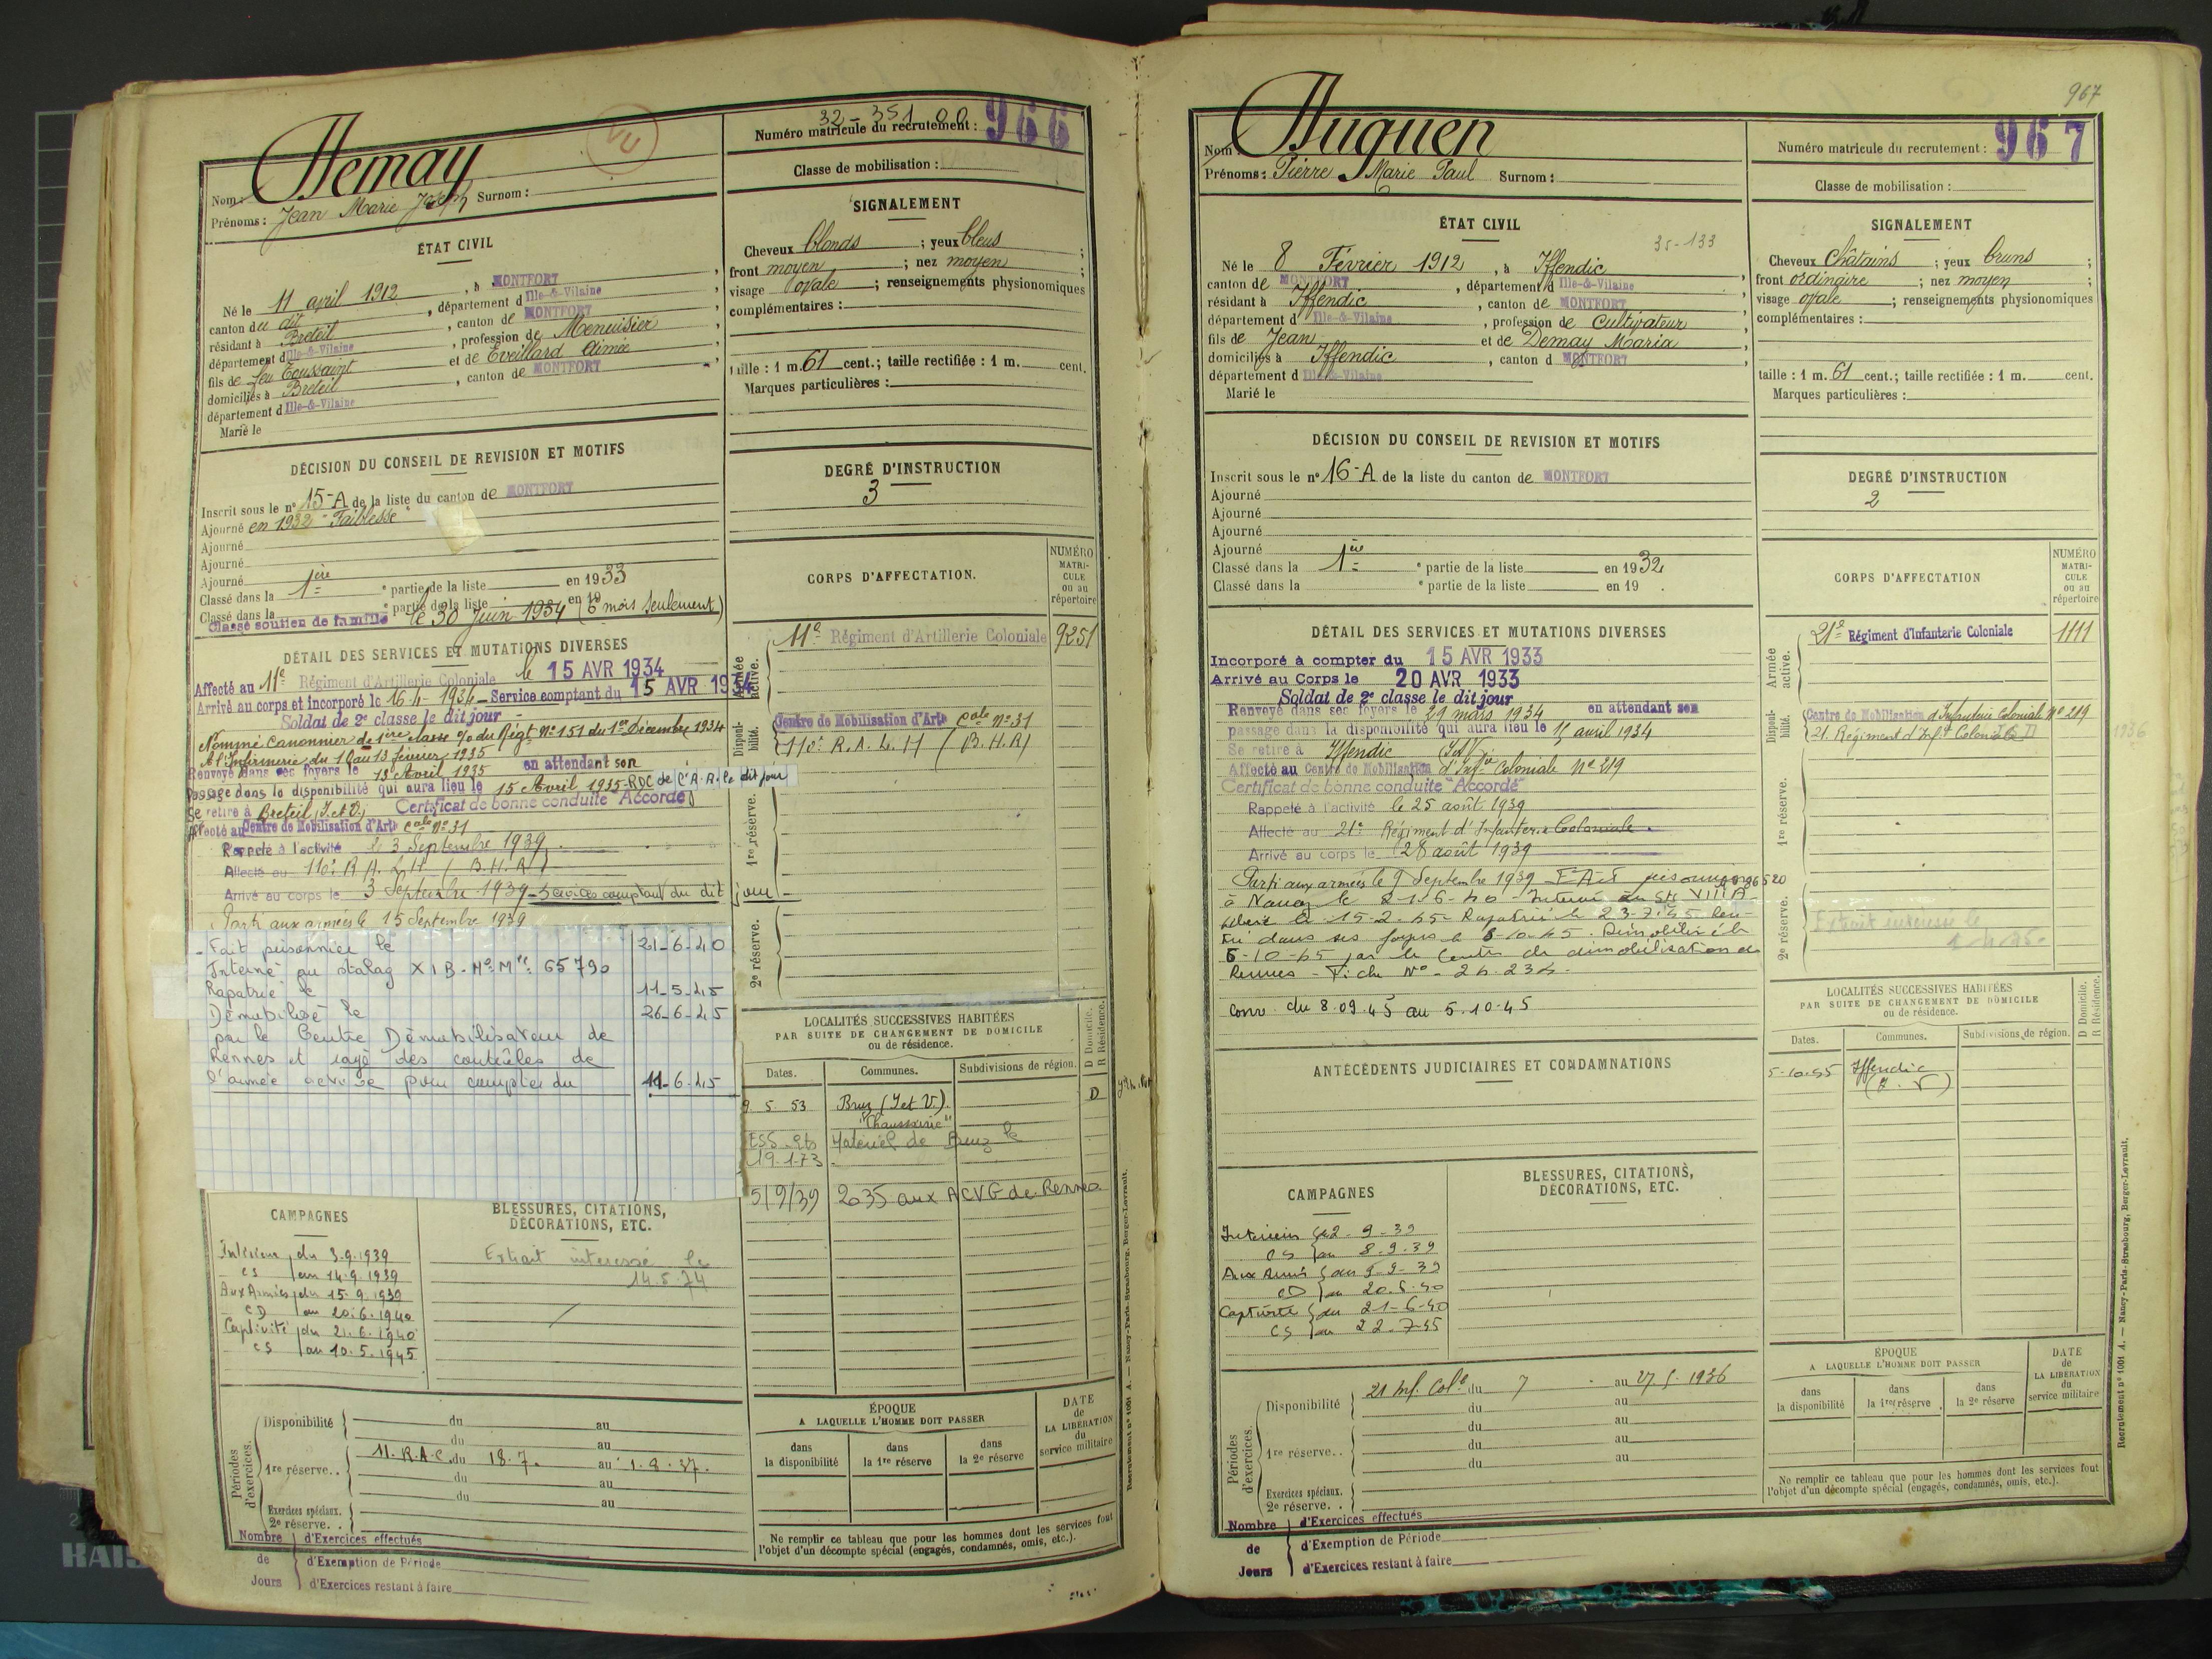 32-351 00
Numéro matricule du recrutement : 966
Nom : Demay
Prénoms : Jean Marie Joseph Surnom :
Classe de mobilisation :
ÉTAT CIVIL
Né le 11 avril 1912, à MONTFORT
canton du dit, département d Ille-&-Vilaine
résidant à Breteil, canton de MONTFORT
département d Ille-&-Vilaine, profession de Menuisier
fils de feu Toussaint et de Eveillard Aimée
domiciliés à Breteil, canton de MONTFORT
département d Ille-&-Vilaine
Marié le
SIGNALEMENT
Cheveux blonds ; yeux bleus ;
front moyen ; nez moyen ;
visage ovale ; renseignements physionomiques
complémentaires :
taille : 1 m. 61 cent.; taille rectifiée : 1 m. cent.
Marques particulières :
DÉCISION DU CONSEIL DE REVISION ET MOTIFS
Inscrit sous le n° 15-A de la liste du canton de MONTFORT
Ajourné en 1932 "Faiblesse"
Ajourné
Ajourné
Ajourné
Classé dans la 1ère partie de la liste en 1933
Classé dans la e partie de la liste en 19
Classé soutien de famille le 30 Juin 1934 (6 mois seulement)
DEGRÉ D'INSTRUCTION
3
DÉTAIL DES SERVICES ET MUTATIONS DIVERSES
Affecté au 11e Régiment d'Artillerie Coloniale le 15 AVR 1934
Arrivé au corps et incorporé le 16-4-1934 - Service comptant du 15 AVR 1934
Soldat de 2e classe le dit jour
Nommé Canonnier de 1ère classe o/o du Régt N° 151 du 1er Décembre 1934
A l'Infirmerie du 10 au 13 février 1935
Renvoyé dans ses foyers le 13 Avril 1935 en attendant son
passage dans la disponibilité qui aura lieu le 15 Avril 1935 - RDC de C.A.R. le dit jour
Se retire à Breteil (I. et V.) Certificat de bonne conduite "Accordé"
Affecté au Centre de Mobilisation d'Artie Cale N° 31
Rappelé à l'activité le 3 Septembre 1939
Affecté au 110e R.A.L.H (B.H.R)
Arrivé au corps le 3 Septembre 1939 - Services comptant du dit jour -
Parti aux armées le 15 Septembre 1939
- Fait prisonnier le 21-6-40
Interné au stalag XI B - N° Mle 65790
Rapatrié le 11-5-45
Démobilisé le 26-6-45
par le Centre Démobilisateur de
Rennes et rayé des contrôles de
l'armée active pour compter du 11-6-45
CORPS D'AFFECTATION.
NUMÉRO MATRICULE ou au répertoire
Armée active.
11e Régiment d'Artillerie Coloniale 9251
Disponibilité.
Centre de Mobilisation d'Artie Cale N° 31
110e R.A.L.H (B.H.R)
1re réserve.
2e réserve.
LOCALITÉS SUCCESSIVES HABITÉES
PAR SUITE DE CHANGEMENT DE DOMICILE
ou de résidence.
D Domicile. R Résidence.
Dates. Communes. Subdivisions de région.
9.5.53 Bruz (I et V.) D
"Chaussairie"
ESS. Ets Matériel de Bruz le
19-1-73
5/9/39 2035 aux ACVG de Rennes
CAMPAGNES
Intérieur du 3.9.1939
CS au 14.9.1939
Aux Armées du 15.9.1939
CD au 20.6.1940
Captivité du 21.6.1940
CS au 10.5.1945
BLESSURES, CITATIONS,
DÉCORATIONS, ETC.
Extrait intéressé le
14.5.74
Périodes d'exercices.
Disponibilité du au
du au
1re réserve.. 11. R.A.C. du 18.7. au 1.8.37.
du au
du au
Exercices spéciaux.
2e réserve. .
Nombre de Jours
d'Exercices effectués
d'Exemption de Période
d'Exercices restant à faire
ÉPOQUE
A LAQUELLE L'HOMME DOIT PASSER
dans la disponibilité
dans la 1re réserve
dans la 2e réserve
DATE de LA LIBÉRATION du service militaire
Ne remplir ce tableau que pour les hommes dont les services font
l'objet d'un décompte spécial (engagés, condamnés, omis, etc.).
Recrutement n° 1001 A. — Nancy-Paris-Strasbourg, Berger-Levrault.
967
Nom : Duguen
Prénoms : Pierre Marie Paul Surnom :
Numéro matricule du recrutement : 967
Classe de mobilisation :
ÉTAT CIVIL
35-133
Né le 8 Février 1912, à Iffendic
canton de MONTFORT, département d Ille-&-Vilaine
résidant à Iffendic, canton de MONTFORT
département d Ille-&-Vilaine, profession de Cultivateur
fils de Jean et de Demay Maria
domiciliés à Iffendic, canton d MONTFORT
département d Ille-&-Vilaine
Marié le
SIGNALEMENT
Cheveux Châtains ; yeux bruns ;
front ordinaire ; nez moyen ;
visage ovale ; renseignements physionomiques
complémentaires :
taille : 1 m. 61 cent.; taille rectifiée : 1 m. cent.
Marques particulières :
DÉCISION DU CONSEIL DE REVISION ET MOTIFS
Inscrit sous le n° 16-A de la liste du canton de MONTFORT
Ajourné
Ajourné
Ajourné
Ajourné
Classé dans la 1ère partie de la liste en 1932
Classé dans la e partie de la liste en 19
DEGRÉ D'INSTRUCTION
2
DÉTAIL DES SERVICES ET MUTATIONS DIVERSES
Incorporé à compter du 15 AVR 1933
Arrivé au Corps le 20 AVR 1933
Soldat de 2e classe le dit jour
Renvoyé dans ses foyers le 29 mars 1934 en attendant son
passage dans la disponibilité qui aura lieu le 15 avril 1934
Se retire à Iffendic (I&V)
Affecté au Centre de Mobilisation d'Infie Coloniale N° 219
Certificat de bonne conduite "Accordé"
Rappelé à l'activité le 25 août 1939
Affecté au 21e Régiment d'Infanterie Coloniale.
Arrivé au corps le 28 août 1939
Parti aux armées le 9 Septembre 1939 Fait prisonnier
à Nancy le 21-6-40 - Interné au St. VIII A
Libéré le 15-2-45 - Rapatrié le 23-7-45 Ren-
tré dans ses foyers le 8-10-45. Démobilisé le
5-10-45 par le Centre de démobilisation de
Rennes - Fiche N° - 24.234.
Conv. du 8.09.45 au 5.10.45
CORPS D'AFFECTATION
NUMÉRO MATRICULE ou au répertoire
Armée active.
21e Régiment d'Infanterie Coloniale 1111
Disponibilité.
Centre de Mobilisation d'Infanterie Coloniale N° 219
21. Régiment d'Inft Coloniale 1936
1re réserve.
2e réserve.
Extrait intéressé le
ANTÉCÉDENTS JUDICIAIRES ET CONDAMNATIONS
LOCALITÉS SUCCESSIVES HABITÉES
PAR SUITE DE CHANGEMENT DE DOMICILE
ou de résidence.
D Domicile. R Résidence.
Dates. Communes. Subdivisions de région.
5-10-45 Iffendic
(I.V)
CAMPAGNES
Intérieur du 2-9-39
CS au 8.9.39
Aux Armées du 9-9-39
CD au 20.6.40
Captivité du 21-6-40
CS au 22.7.45
BLESSURES, CITATIONS,
DÉCORATIONS, ETC.
Périodes d'exercices.
Disponibilité 21 Inf. Cole du 7 au 27.5.1936
du au
du au
1re réserve.. du au
du au
Exercices spéciaux.
2e réserve. .
Nombre de Jours
d'Exercices effectués
d'Exemption de Période
d'Exercices restant à faire
ÉPOQUE
A LAQUELLE L'HOMME DOIT PASSER
dans la disponibilité
dans la 1re réserve
dans la 2e réserve
DATE de LA LIBÉRATION du service militaire
Ne remplir ce tableau que pour les hommes dont les services font
l'objet d'un décompte spécial (engagés, condamnés, omis, etc.).
Recrutement n° 1001 A. — Nancy-Paris-Strasbourg, Berger-Levrault.